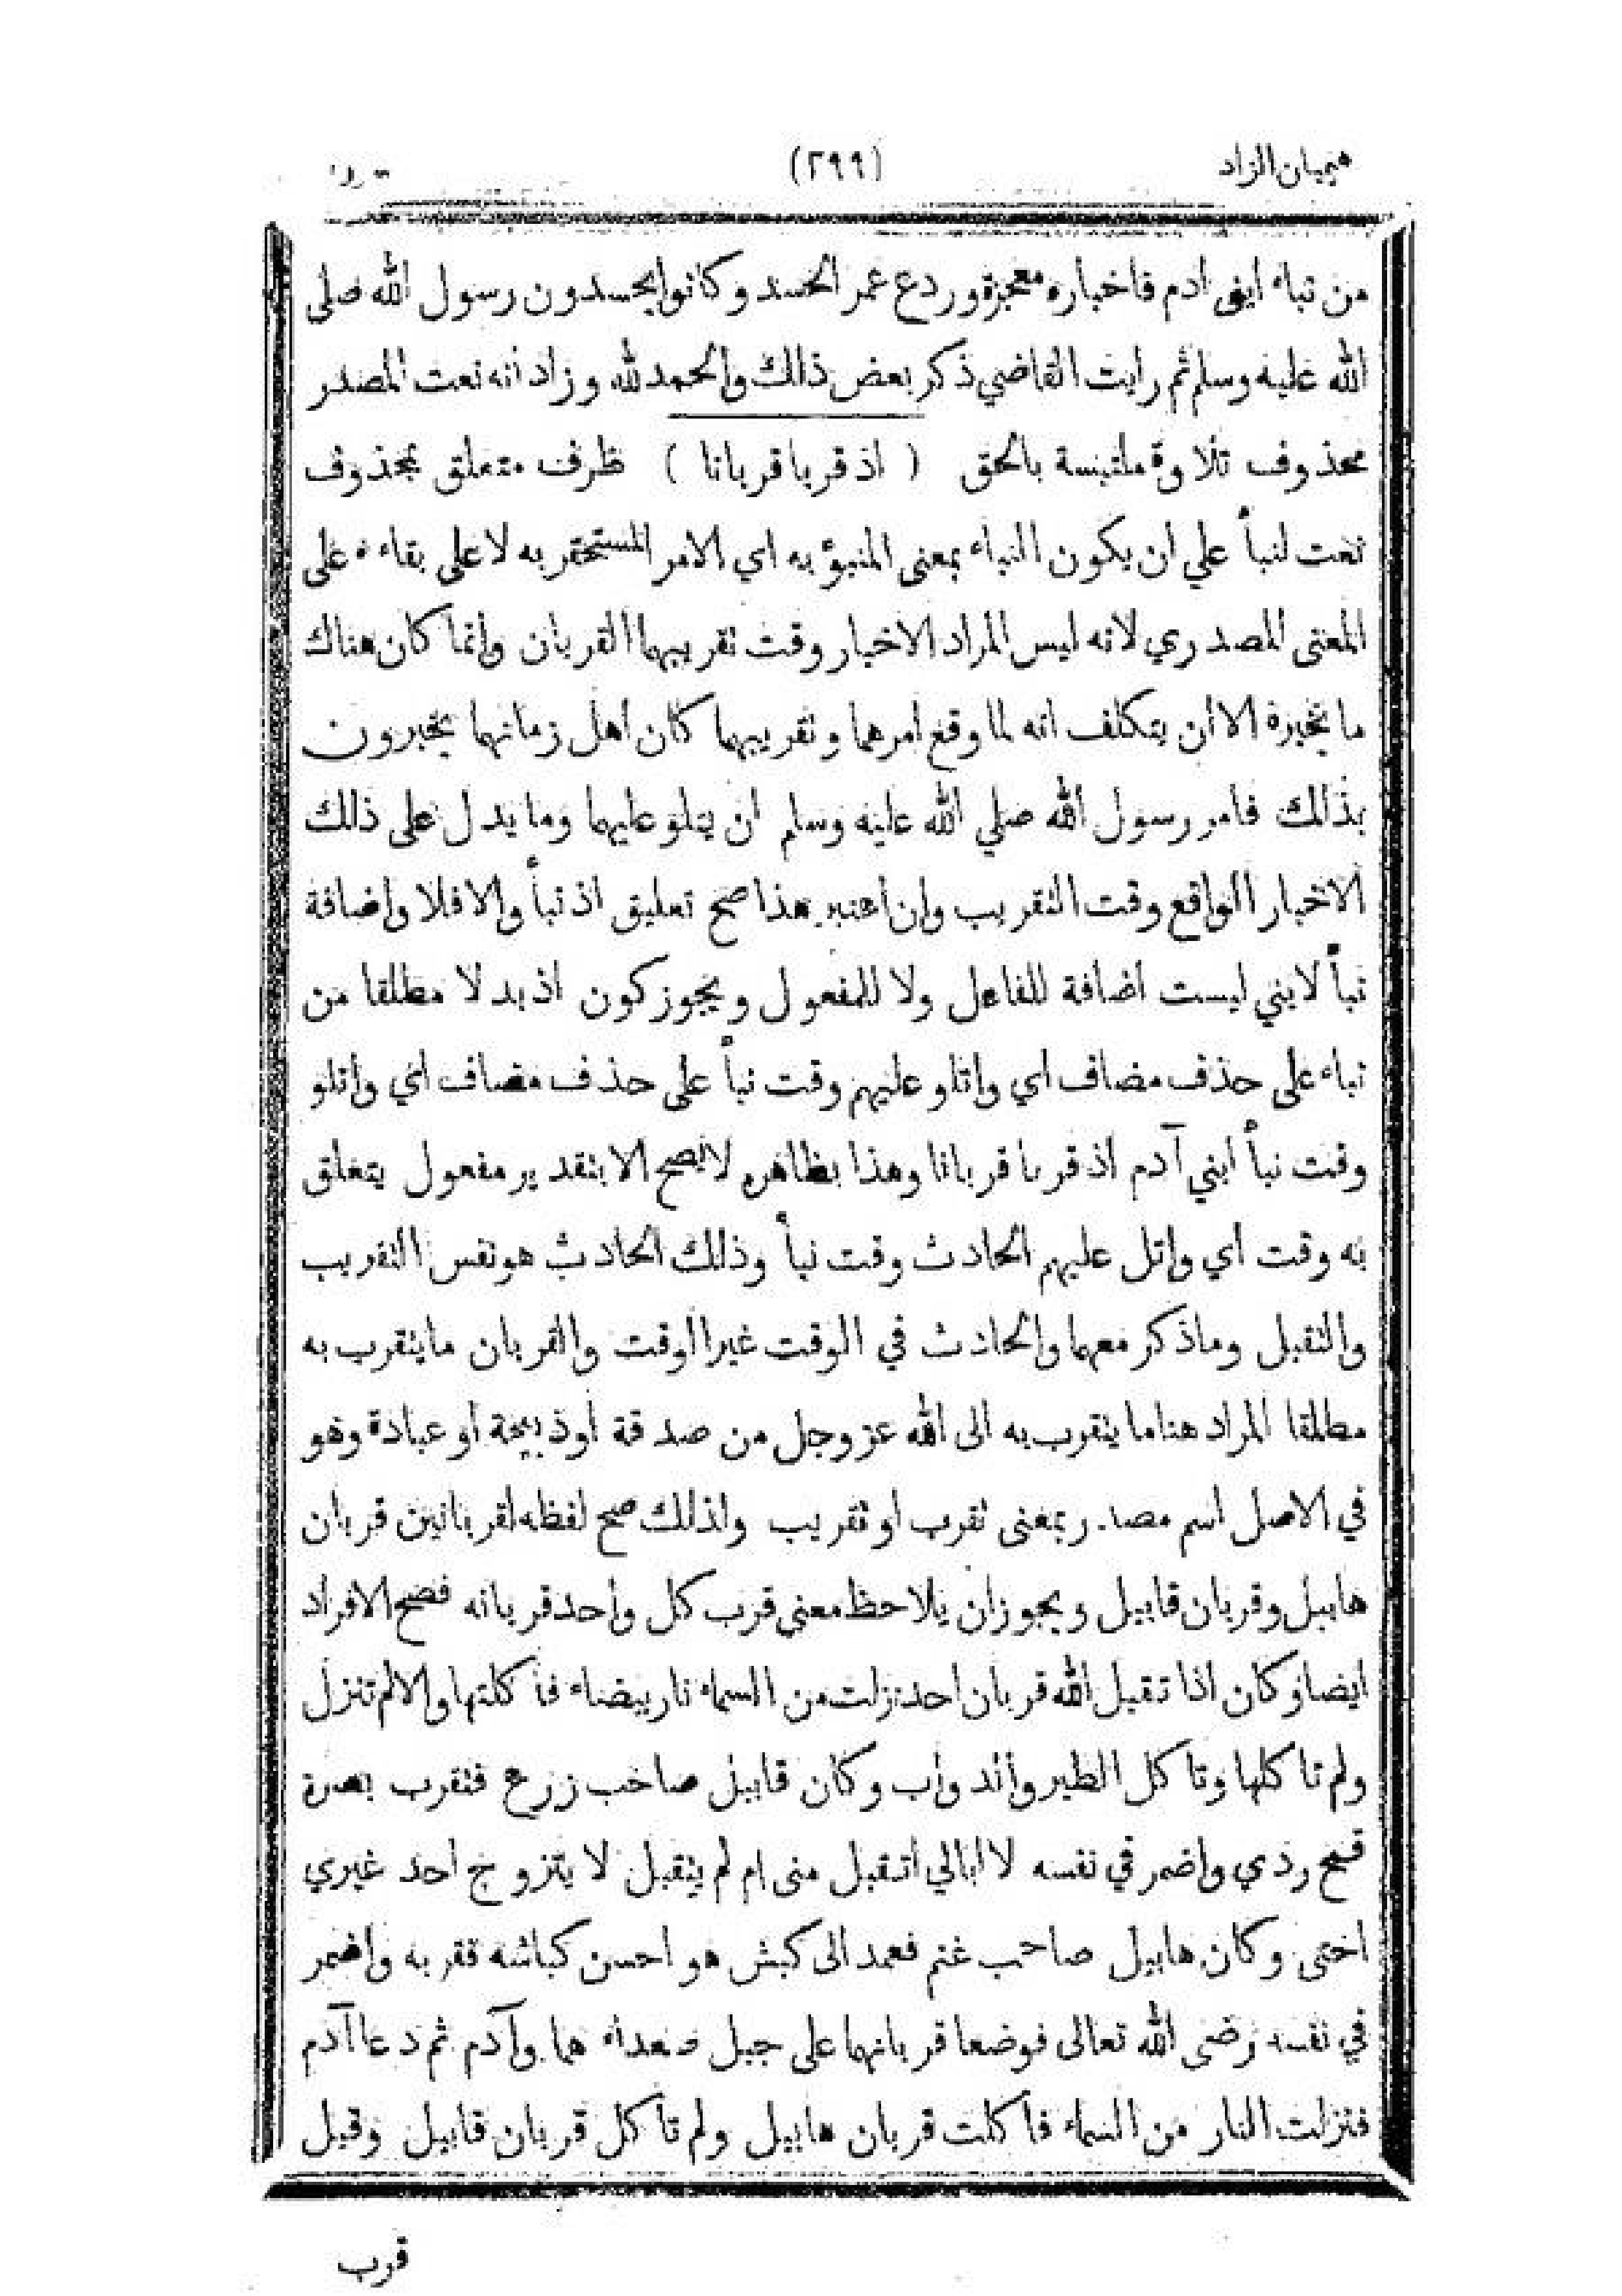 هيميان الزاد (٢٩٩)
من نباء ابنى ادم فاخباره معجزة وردع عمر الحسد وكانوا يحسدون رسول الله صلى
الله عليه وسلم ثم رايت القاضي ذكر بعض ذلك والحمد لله وزاد انه نعت المصدر
محذوف تلاوة ملتبسة بالحق ( اذ قربا قربانا ) ظرف متعلق بمحذوف
نعت لنبأ علي ان يكون النباء بمعنى المنبؤ به اي الامر المستحقر به لا على بقاءه على
المعنى المصدري لانه ليس المراد الاخبار وقت تقريبهما القربان وانما كان هناك
ما يخبره الا أن يتكلف انه لما وقع امرهما وتقريبهما كان اهل زمانهما يخبرون
بذلك فامر رسول الله صلي الله عليه وسلم ان يتلو عليهما وما يدل على ذلك
الاخبار الواقع وقت التقريب وان اعتبر هذا صح تعليق اذ نبأ والا فلا واضافة
نبأ لابني ليست أضافة للفاعل ولا للمفعول ويجوز كون اذ بدلا مطلقا من
نباء على حذف مضاف اي واتلو عليهم وقت نبأ على حذف مضاف اي واتلو
وقت نبأ ابني آدم اذ قربا قربانا وهذا بظاهره لا يصح الا بتقدير مفعول يتعلق
به وقت اي واتل عليهم الحادث وقت نبأ وذلك الحادث هو نفس التقريب
والتقبل وما ذكر معهما والحادث في الوقت غير الوقت والقربان ما يتقرب به
مطلقا المراد هنا ما يتقرب به الى الله عز وجل من صدقة أو ذبيحة او عبادة وهو
في الاصل اسم مصدر بمعنى تقرب او تقريب ولذلك صح لفظه لقربانين قربان
هابيل وقربان قابيل ويجوز ان يلاحظ معنى قرب كل واحد قربانه فصح الافراد
ايضا وكان اذا تقبل الله قربان احد نزلت من السماء نار بيضاء فأكلتها والا لم تنزل
ولم تاكلها وتاكل الطير والدواب وكان قابيل صاحب زرع فتقرب بصرة
قمح ردي واضمر في نفسه لا ابالي اتقبل منى ام لم يتقبل لا يتزوج احد غيري
اختى وكان هابيل صاحب غنم فعمد الى كبش هو احسن كباشه فقربه واضمر
في نفسه رضى الله تعالى فوضعا قربانهما على جبل صعداء هما وآدم ثم دعا آدم
فنزلت النار من السماء فأكلت قربان هابيل ولم تأكل قربان قابيل وقيل
قرب